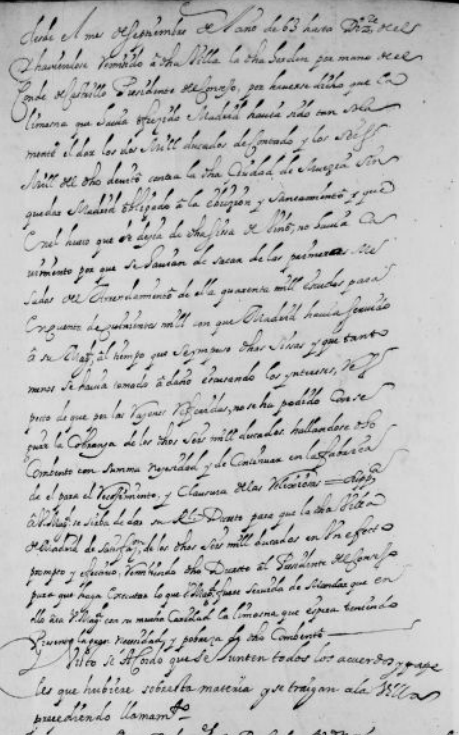 desde el mes de septiembre del año de 63 hasta Diz.e del
Y haviendose Remitido a dha Villa la dha horden por mano del
Conde de Castrillo Presidente del Consejo, por haverse dicho que la
limosna que havia ofrezido Madrid havia sido tan sola
mente el dar los dos mill ducados de Contado y los seis
mill del dho devito contra la dha Ciudad de Murzia sin
quedar Madrid obligado a la evizion y saneamiento y que
en el hueco que se dezia de dha sissa de vino, no havia ca
vimiento por que se havian de sacar de las primeras me
sadas del Arrendamiento de ella quarenta mill escudos para
en quenta de quinientos mill con que Madrid havia servido
a su Mag.d al tiempo que se ympuso dhas sisas y que tanto
menos se havia tomado a daño escusando los yntereses, Res
pecto de que por las Razones Referidas, no se ha podido conse
guir la Cobranza de los dhos seis mill ducados hallandose dho
Combento con summa nezesidad y de Continuar en la fabrica
de el para el Recojimiento, y Clausura de las Relixiosas = Supp.ca
a V. Mag.d se sirba de dar su R.l Decreto para que la dha Villa
de Madrid de satisfaz.on de los dhos seis mill ducados en Un efecto
prompto y efectivo, Remitiendo dho Decreto al Presidente del Consejo
para que haga executar lo que V. Mag.d fuere servido de Mandar que en
ello ara V. Mag.d con su mucha Caridad la limosna que espera teniendo
Presente la gran Nezesidad, y pobreza de dho Combento
Y Visto se Acordo que se Junten todos los acuerdos y pape
les que hubiere sobre esta materia y se traygan a la Villa
precediendo llamam.to